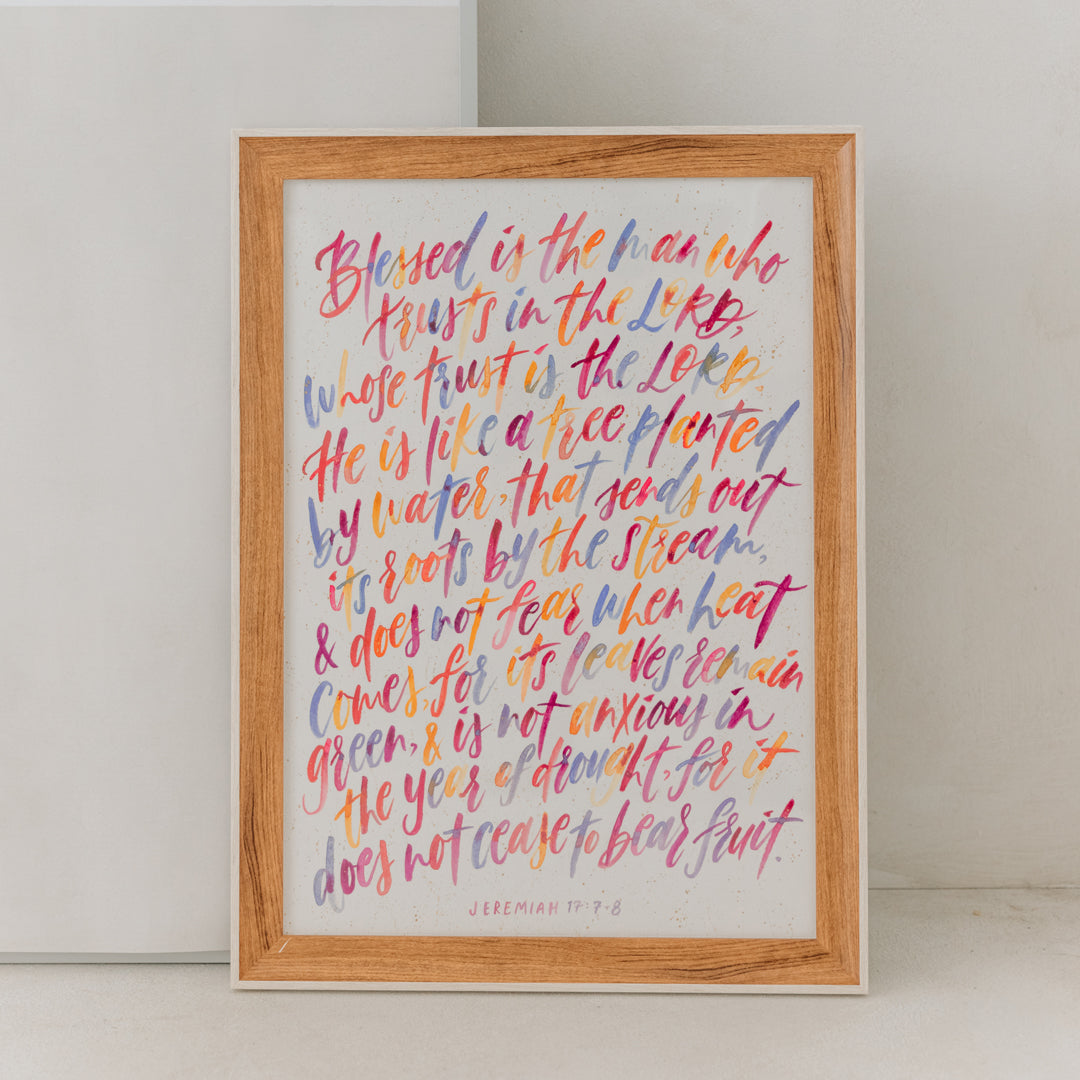 Blessed is the man who
trusts in the LORD,
whose trust is the LORD.
He is like a tree planted
by water, that sends out
its roots by the stream,
& does not fear when heat
comes, for its leaves remain
green, & is not anxious in
the year of drought, for it
does not cease to bear fruit.
JEREMIAH 17:7-8